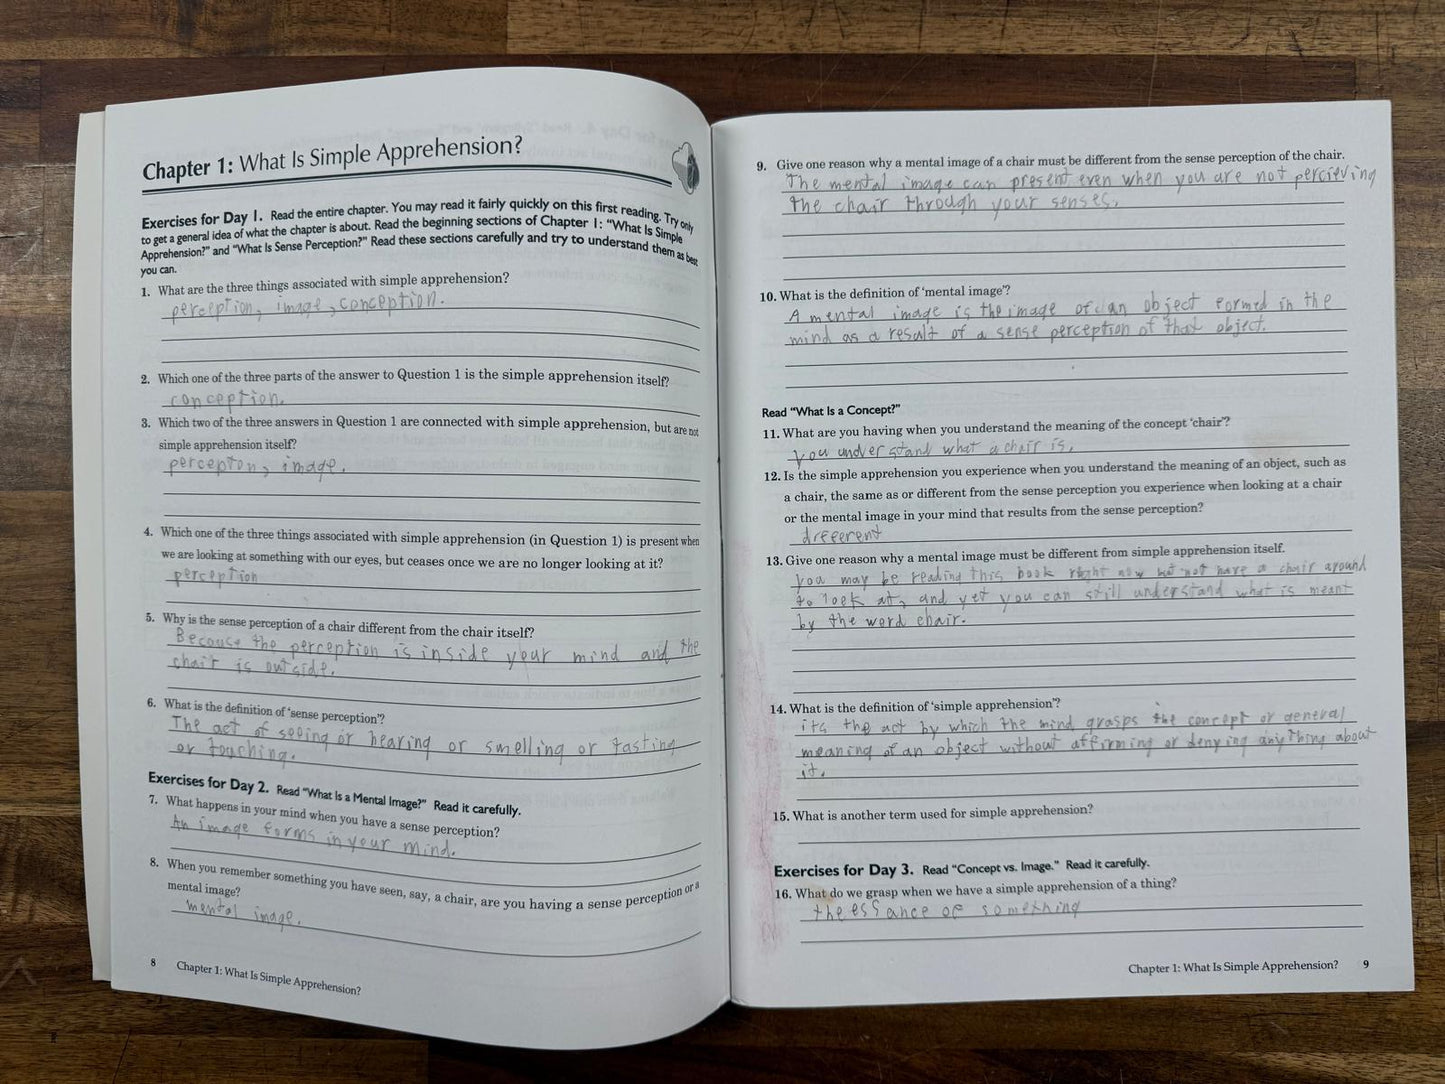 Chapter 1: What Is Simple Apprehension?
Exercises for Day 1. Read the entire chapter. You may read it fairly quickly on this first reading. Try only
to get a general idea of what the chapter is about. Read the beginning sections of Chapter 1: “What Is Simple
Apprehension?” and “What Is Sense Perception?” Read these sections carefully and try to understand them as best
you can.
1. What are the three things associated with simple apprehension?
perception, image, conception.
2. Which one of the three parts of the answer to Question 1 is the simple apprehension itself?
conception.
3. Which two of the three answers in Question 1 are connected with simple apprehension, but are not
simple apprehension itself?
percepton, image.
4. Which one of the three things associated with simple apprehension (in Question 1) is present when
we are looking at something with our eyes, but ceases once we are no longer looking at it?
perception
5. Why is the sense perception of a chair different from the chair itself?
Because the perception is inside your mind and the
chair is outside.
6. What is the definition of ‘sense perception’?
The act of seeing or hearing or smelling or tasting
or touching.
Exercises for Day 2. Read “What Is a Mental Image?” Read it carefully.
7. What happens in your mind when you have a sense perception?
An image forms in your mind.
8. When you remember something you have seen, say, a chair, are you having a sense perception or a
mental image?
mental image.
8 Chapter 1: What Is Simple Apprehension?
9. Give one reason why a mental image of a chair must be different from the sense perception of the chair.
The mental image can present even when you are not percieving
the chair through your senses.
10. What is the definition of ‘mental image’?
A mental image is the image of an object formed in the
mind as a result of a sense perception of that object.
Read “What Is a Concept?”
11. What are you having when you understand the meaning of the concept ‘chair’?
you understand what a chair is.
12. Is the simple apprehension you experience when you understand the meaning of an object, such as
a chair, the same as or different from the sense perception you experience when looking at a chair
or the mental image in your mind that results from the sense perception?
dreferent
13. Give one reason why a mental image must be different from simple apprehension itself.
you may be reading this book right now but not have a chair around
to look at, and yet you can still understand what is meant
by the word chair.
14. What is the definition of ‘simple apprehension’?
its the act by which the mind grasps the concept or general
meaning of an object without affirming or denying anything about
it.
15. What is another term used for simple apprehension?
Exercises for Day 3. Read “Concept vs. Image.” Read it carefully.
16. What do we grasp when we have a simple apprehension of a thing?
the essance of something
Chapter 1: What Is Simple Apprehension? 9